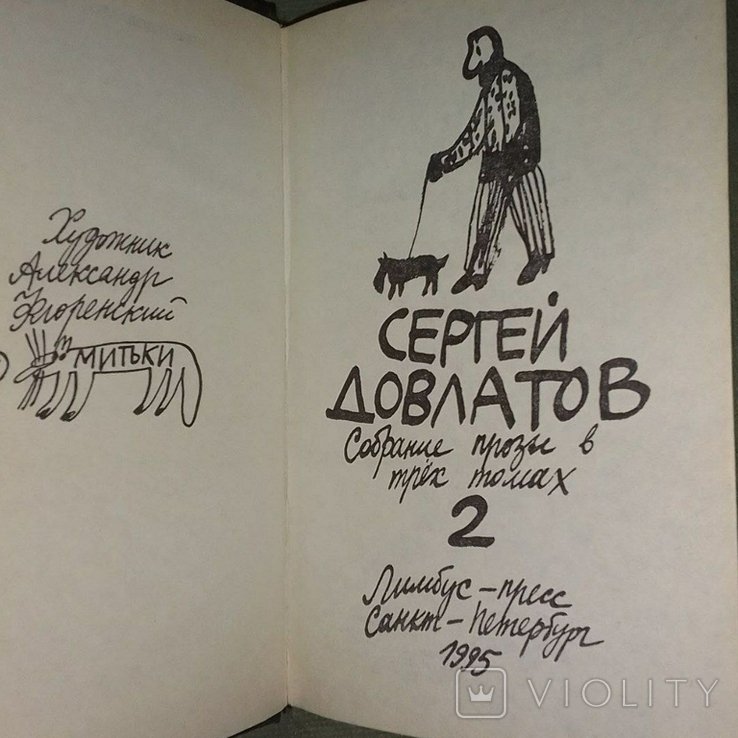 Художник
Александр
Флоренский
МИТЬКИ
СЕРГЕЙ
ДОВЛАТОВ
Собрание прозы в
трёх томах
2
Лимбус-пресс
Санкт-Петербург
1995
VIOLITY